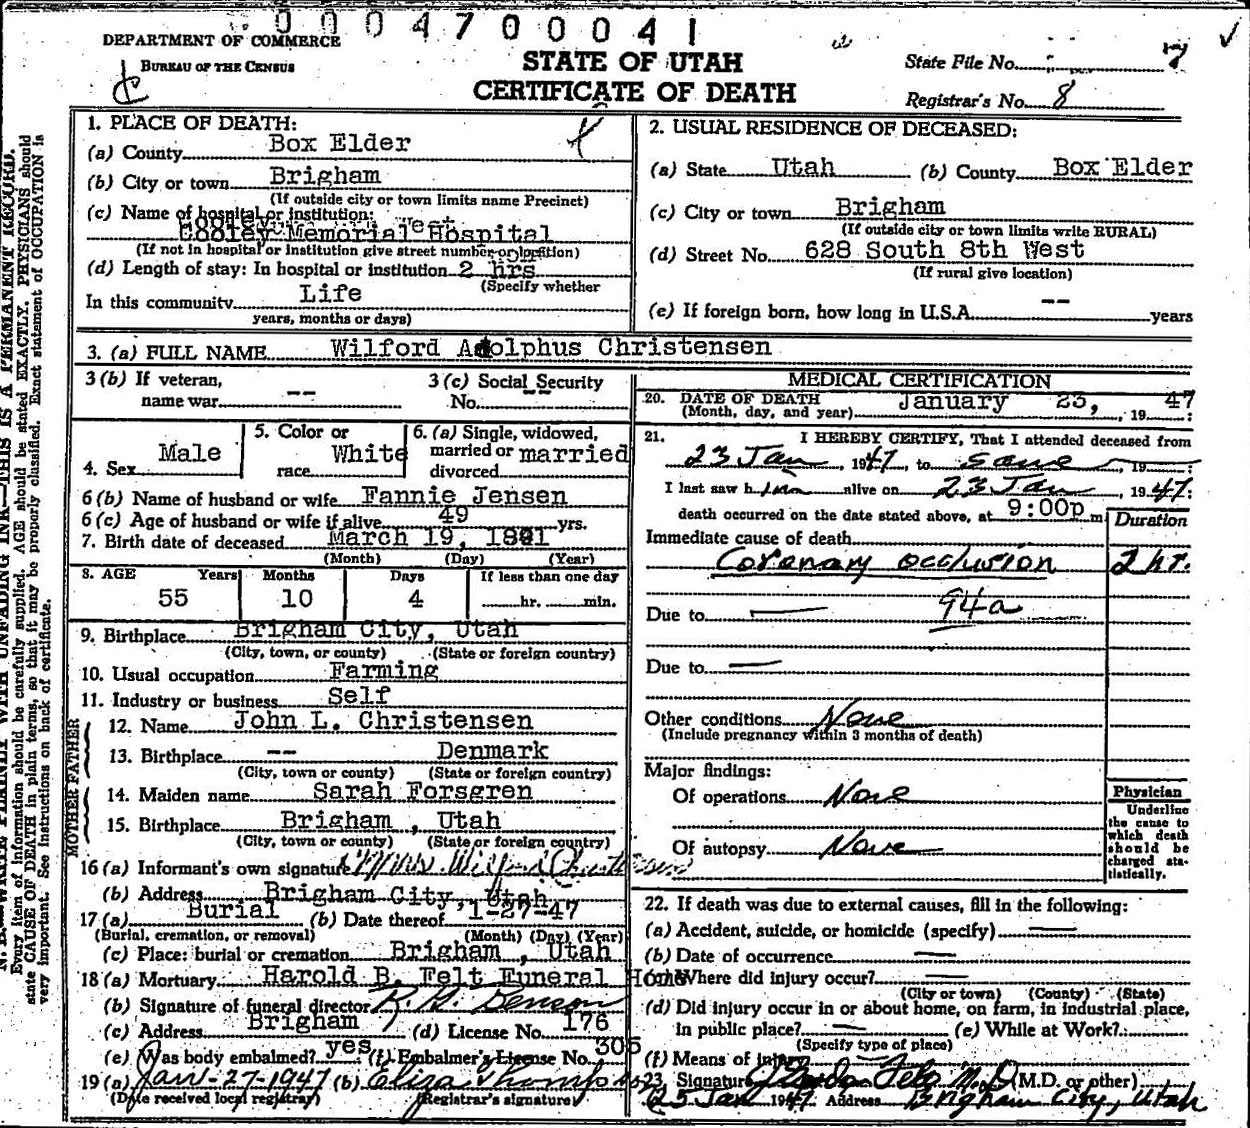 0004700041
DEPARTMENT OF COMMERCE
BUREAU OF THE CENSUS
STATE OF UTAH
CERTIFICATE OF DEATH
State File No. 7
Registrar's No. 8
1. PLACE OF DEATH:
(a) County Box Elder
(b) City or town Brigham
(If outside city or town limits name Precinct)
(c) Name of hospital or institution:
Cooley Memorial Hospital
(If not in hospital or institution give street number or location)
(d) Length of stay: In hospital or institution 2 hrs
(Specify whether
In this community Life
years, months or days)
2. USUAL RESIDENCE OF DECEASED:
(a) State Utah (b) County Box Elder
(c) City or town Brigham
(If outside city or town limits write RURAL)
(d) Street No. 628 South 8th West
(If rural give location)
(e) If foreign born, how long in U.S.A. -- years
3. (a) FULL NAME Wilford Adolphus Christensen
3 (b) If veteran,
name war --
3 (c) Social Security
No. --
4. Sex Male
5. Color or
race White
6. (a) Single, widowed,
married or married
divorced
6 (b) Name of husband or wife Fannie Jensen
6 (c) Age of husband or wife if alive 49 yrs.
7. Birth date of deceased March 19, 1891
(Month) (Day) (Year)
8. AGE Years Months Days If less than one day
55 10 4 hr. min.
9. Birthplace Brigham City, Utah
(City, town, or county) (State or foreign country)
10. Usual occupation Farming
11. Industry or business Self
FATHER
12. Name John L. Christensen
13. Birthplace -- Denmark
(City, town or county) (State or foreign country)
MOTHER
14. Maiden name Sarah Forsgren
15. Birthplace Brigham, Utah
(City, town or county) (State or foreign country)
16 (a) Informant's own signature Mrs. Wilford Christensen
(b) Address Brigham City, Utah
17 (a) Burial (b) Date thereof 1-27-47
(Burial, cremation, or removal) (Month) (Day) (Year)
(c) Place: burial or cremation Brigham, Utah
18 (a) Mortuary Harold B. Felt Funeral Home
(b) Signature of funeral director
(c) Address Brigham (d) License No. 176
(e) Was body embalmed? yes (f) Embalmer's License No. 305
19 (a) Jan-27-1947 (b) Eliza Thompson
(Date received local registrar) (Registrar's signature)
MEDICAL CERTIFICATION
20. DATE OF DEATH January 23, 1947
(Month, day, and year)
21. I HEREBY CERTIFY, That I attended deceased from
23 Jan, 1947, to same, 19
I last saw him alive on 23 Jan, 1947:
death occurred on the date stated above, at 9:00p m
Duration
Immediate cause of death
Coronary occlusion 2 hr.
Due to — 94a
Due to —
Other conditions None
(Include pregnancy within 3 months of death)
Major findings:
Of operations None
Of autopsy None
Physician
Underline
the cause to
which death
should be
charged sta-
tistically.
22. If death was due to external causes, fill in the following:
(a) Accident, suicide, or homicide (specify) —
(b) Date of occurrence —
Where did injury occur? —
(City or town) (County) (State)
(d) Did injury occur in or about home, on farm, in industrial place,
in public place? — (e) While at Work?
(Specify type of place)
(f) Means of injury
23 Signature Felt M.D. (M.D. or other)
25 Jan 1947 Address Brigham City, Utah
N. B.—WRITE PLAINLY WITH UNFADING INK—THIS IS A PERMANENT RECORD.
Every item of information should be carefully supplied. AGE should be stated EXACTLY. PHYSICIANS should
state CAUSE OF DEATH in plain terms, so that it may be properly classified. Exact statement of OCCUPATION is
very important. See instructions on back of certificate.